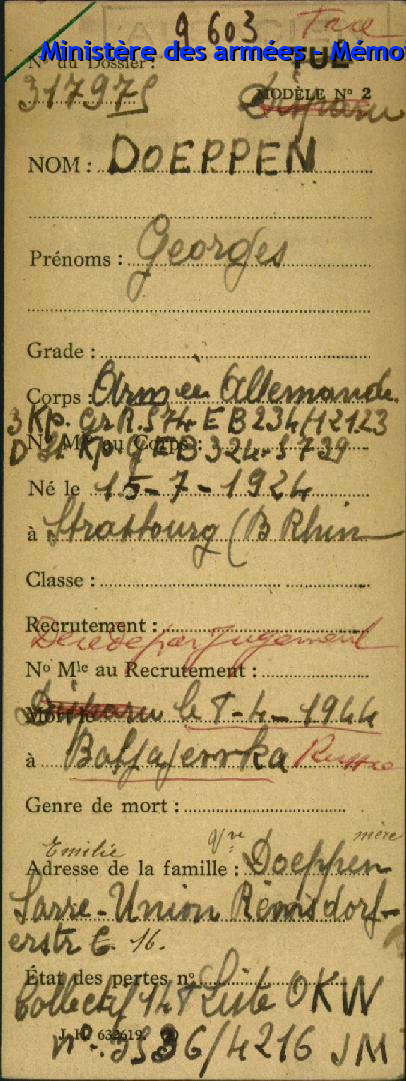 9 603
Ministère des armées - Mémo
N° du Dossier :
317975
MODÈLE N° 2
Disparu
NOM : DOEPPEN
Prénoms : Georges
Grade :
Corps : Armée Allemande
3 Kp. Gr R. 574 E B 234/12123
N° Mle au Corps :
Né le 15-7-1924
à Strasbourg (B Rhin
Classe :
Recrutement :
Décédé par jugement
N° Mle au Recrutement :
Disparu le 8-4-1944
Mort le
à Baljajewka Russie
Genre de mort :
Emilie mère
Adresse de la famille : Doeppen
Sarre-Union Rémsdorf-
erstr 6. 16.
État des pertes n°
Collectif Liste OKW
J. D. 632619.
n° 3536/4216 JM